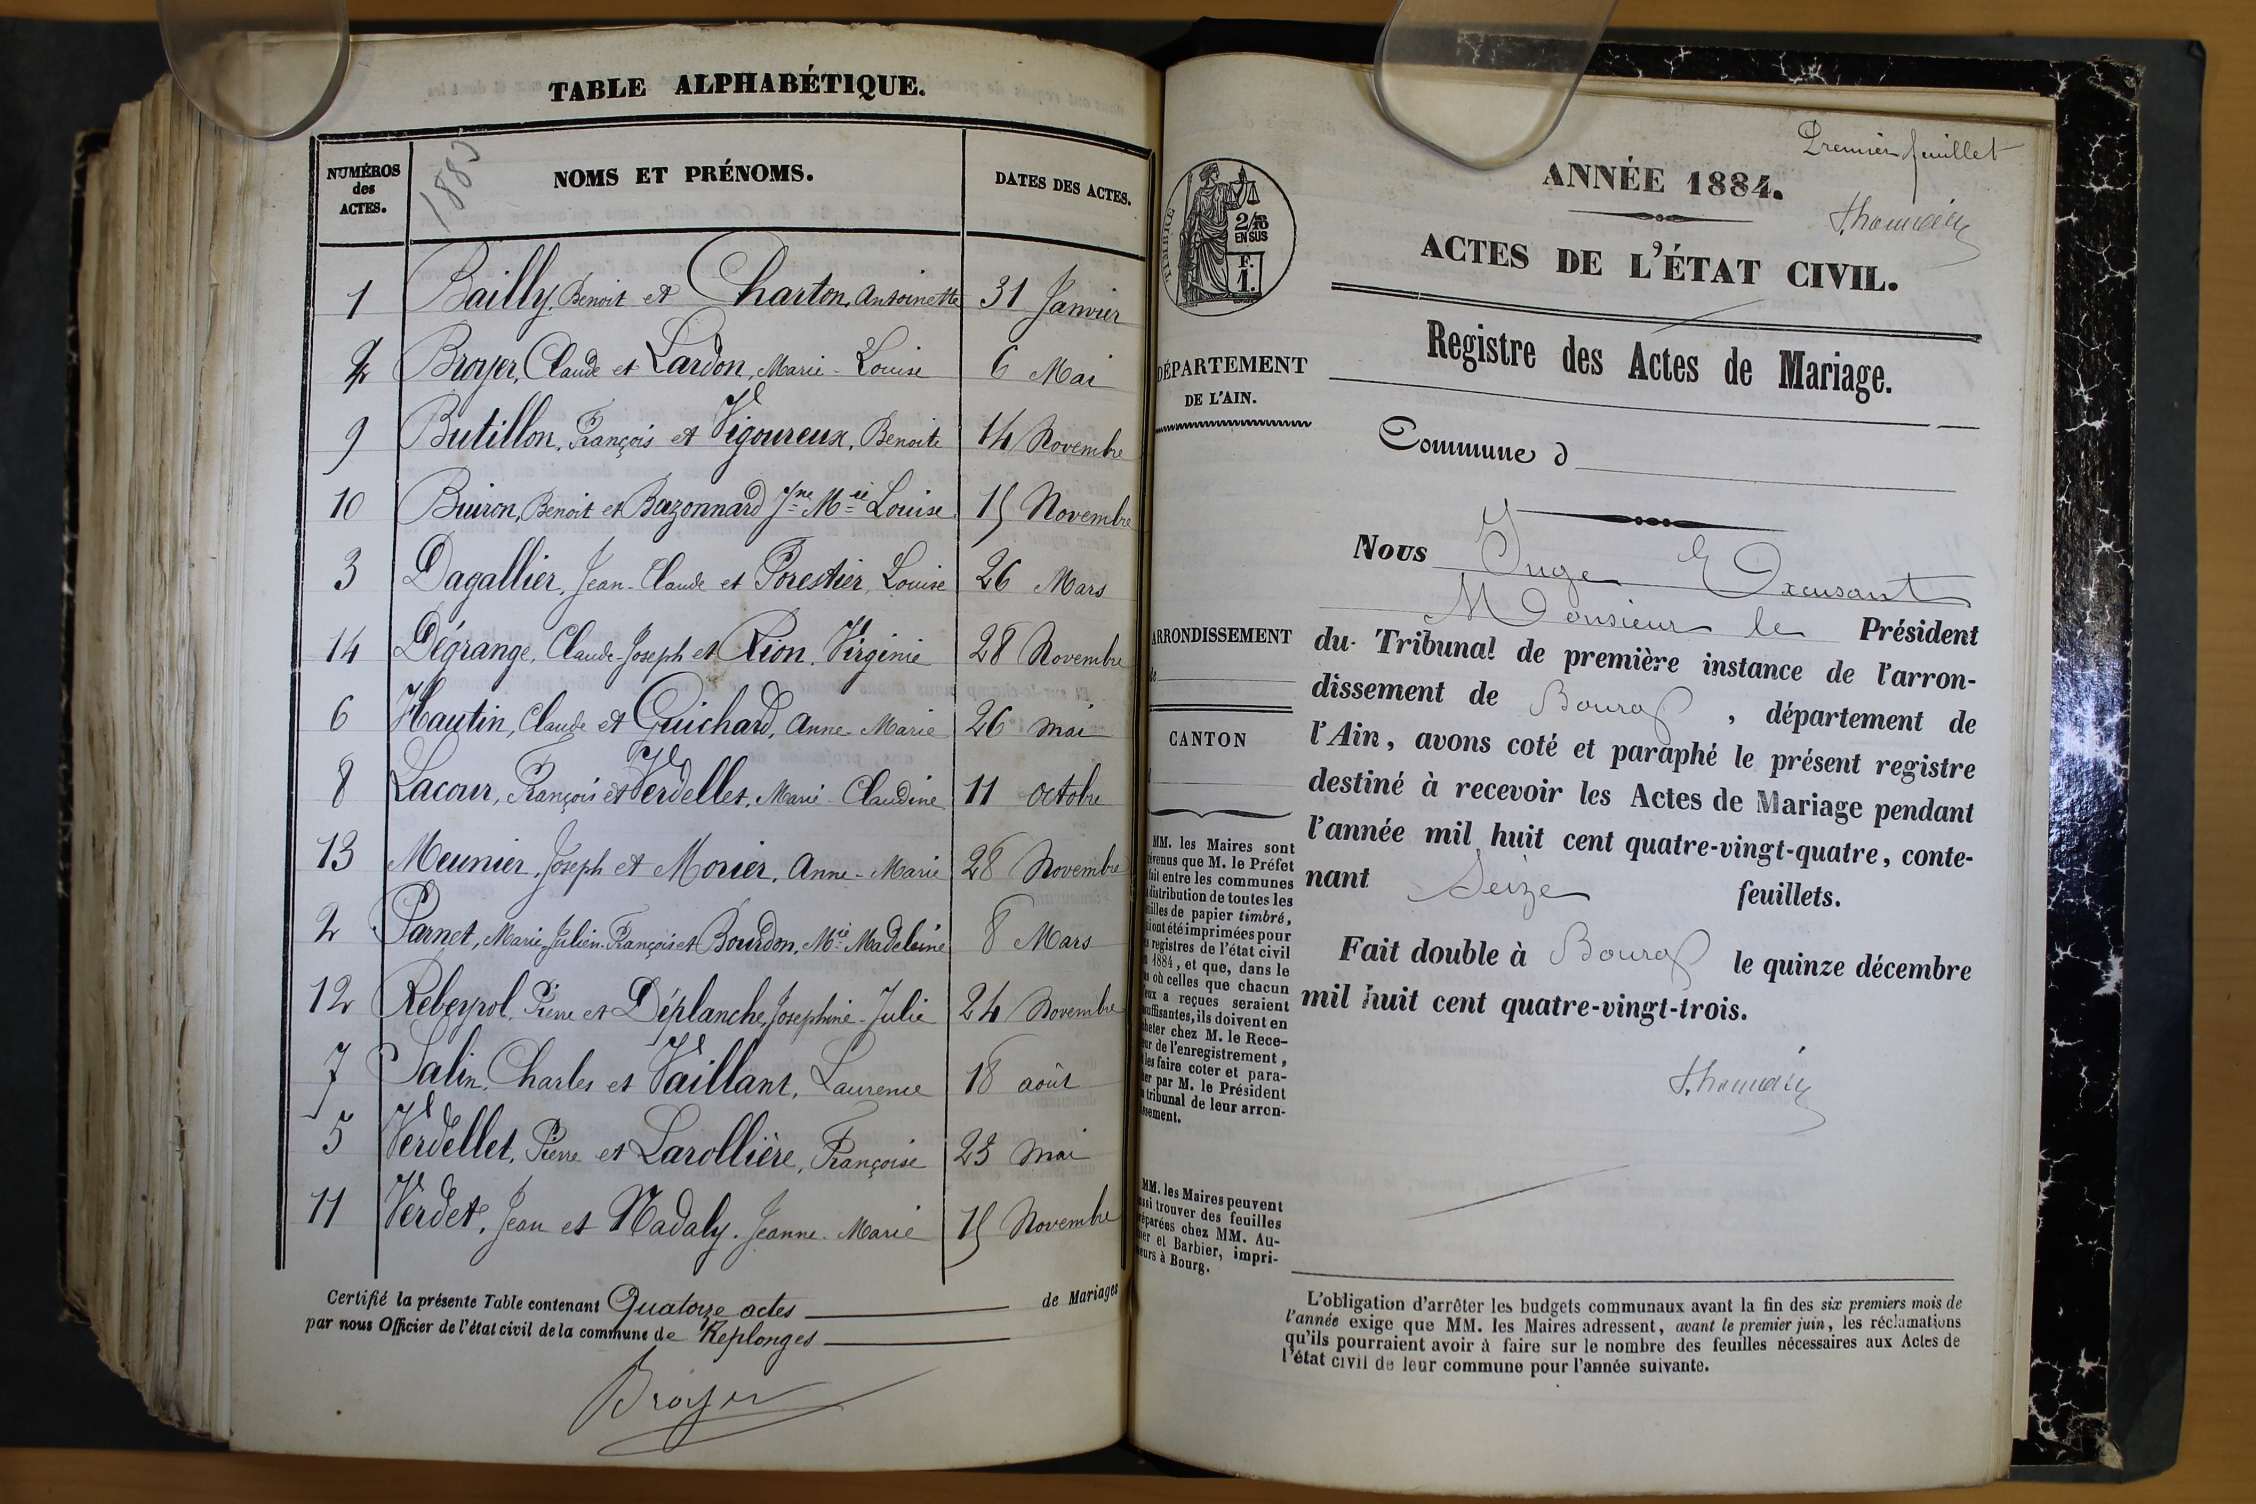 TABLE ALPHABÉTIQUE.
NUMÉROS des ACTES.
1883
NOMS ET PRÉNOMS.
DATES DES ACTES.
1 Bailly, Benoit et Charton, Antoinette 31 Janvier
4 Broyer, Claude et Lardon, Marie-Louise 6 Mai
9 Butillon, François et Vigoureux, Benoite 14 Novembre
10 Buiron, Benoit et Bazonnard Jne Mie Louise 15 Novembre
3 Dagallier, Jean-Claude et Forestier, Louise 26 Mars
14 Dégrange, Claude-Joseph et Rion, Virginie 28 Novembre
6 Hautin, Claude et Guichard, Anne-Marie 26 mai
8 Lacour, François et Verdellet, Marie-Claudine 11 octobre
13 Meunier, Joseph et Morier, Anne-Marie 28 Novembre
2 Parnet, Marie-Julien-François et Bourdon, Mie Madeleine 8 Mars
12 Rebeyrol, Pierre et Déplanche, Joséphine-Julie 24 Novembre
7 Salin, Charles et Vaillant, Laurence 18 août
5 Verdellet, Pierre et Larollière, Françoise 23 mai
11 Verdet, Jean et Nadaly, Jeanne-Marie 15 Novembre
Certifié la présente Table contenant Quatorze actes de Mariages
par nous Officier de l'état civil de la commune de Replonges
Broyer
Premier feuillet
TIMBRE
2/10
EN SUS
F.
1.
ANNÉE 1884.
ACTES DE L'ÉTAT CIVIL.
Registre des Actes de Mariage.
DÉPARTEMENT
DE L'AIN.
Commune d
ARRONDISSEMENT
de
CANTON
Nous Juge Excusant
Monsieur le Président
du Tribunal de première instance de l'arron-
dissement de Bourg, département de
l'Ain, avons coté et paraphé le présent registre
destiné à recevoir les Actes de Mariage pendant
l'année mil huit cent quatre-vingt-quatre, conte-
nant Seize feuillets.
Fait double à Bourg le quinze décembre
mil huit cent quatre-vingt-trois.
MM. les Maires sont
évenus que M. le Préfet
fait entre les communes
distribution de toutes les
uilles de papier timbré,
i ont été imprimées pour
s registres de l'état civil
1884, et que, dans le
s où celles que chacun
eux a reçues seraient
suffisantes, ils doivent en
heter chez M. le Rece-
ur de l'enregistrement,
les faire coter et para-
er par M. le Président
tribunal de leur arron-
ssement.
MM. les Maires peuvent
ssi trouver des feuilles
éparées chez MM. Au-
ier et Barbier, impri-
eurs à Bourg.
L'obligation d'arrêter les budgets communaux avant la fin des six premiers mois de
l'année exige que MM. les Maires adressent, avant le premier juin, les réclamations
qu'ils pourraient avoir à faire sur le nombre des feuilles nécessaires aux Actes de
l'état civil de leur commune pour l'année suivante.